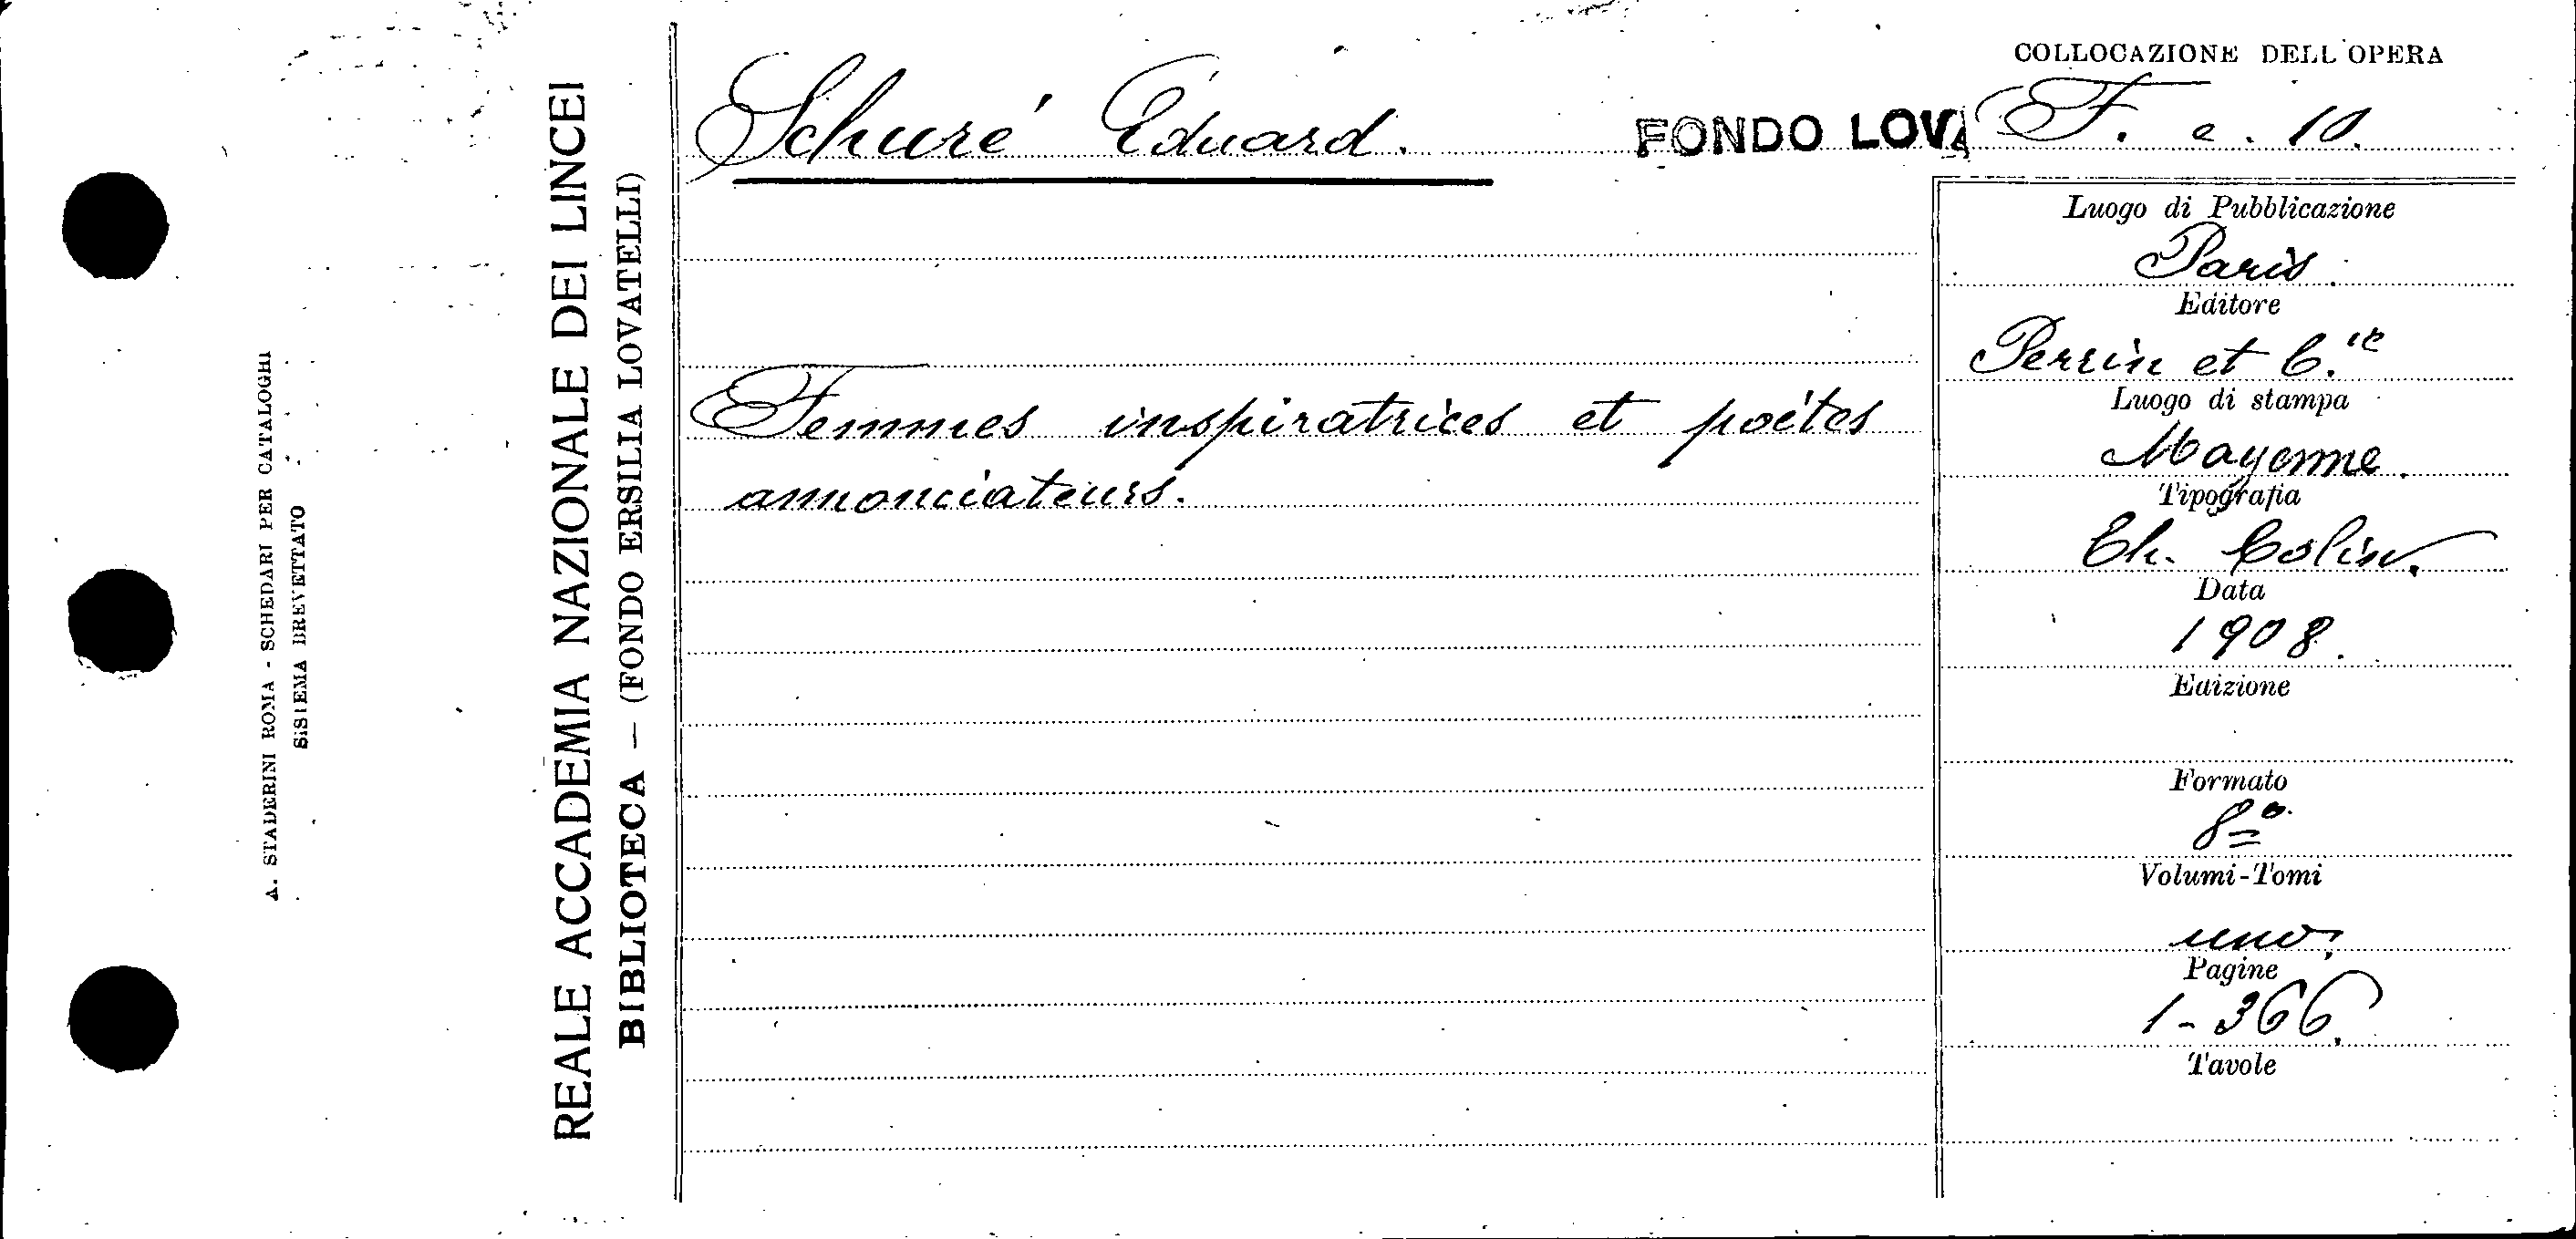 A. STADERINI ROMA - SCHEDARI PER CATALOGHI
SISTEMA BREVETTATO
REALE ACCADEMIA NAZIONALE DEI LINCEI
BIBLIOTECA — (FONDO ERSILIA LOVATELLI)
Schuré Eduard.
FONDO LOVA
Femmes inspiratrices et poétes
annonciateurs.
COLLOCAZIONE DELL'OPERA
F. e. 10.
Luogo di Pubblicazione
Paris.
Editore
Perrin et C.ie
Luogo di stampa
Mayenne.
Tipografia
Ch. Colin.
Data
1908.
Edizione
Formato
8º
Volumi-Tomi
uno.
Pagine
1-366.
Tavole